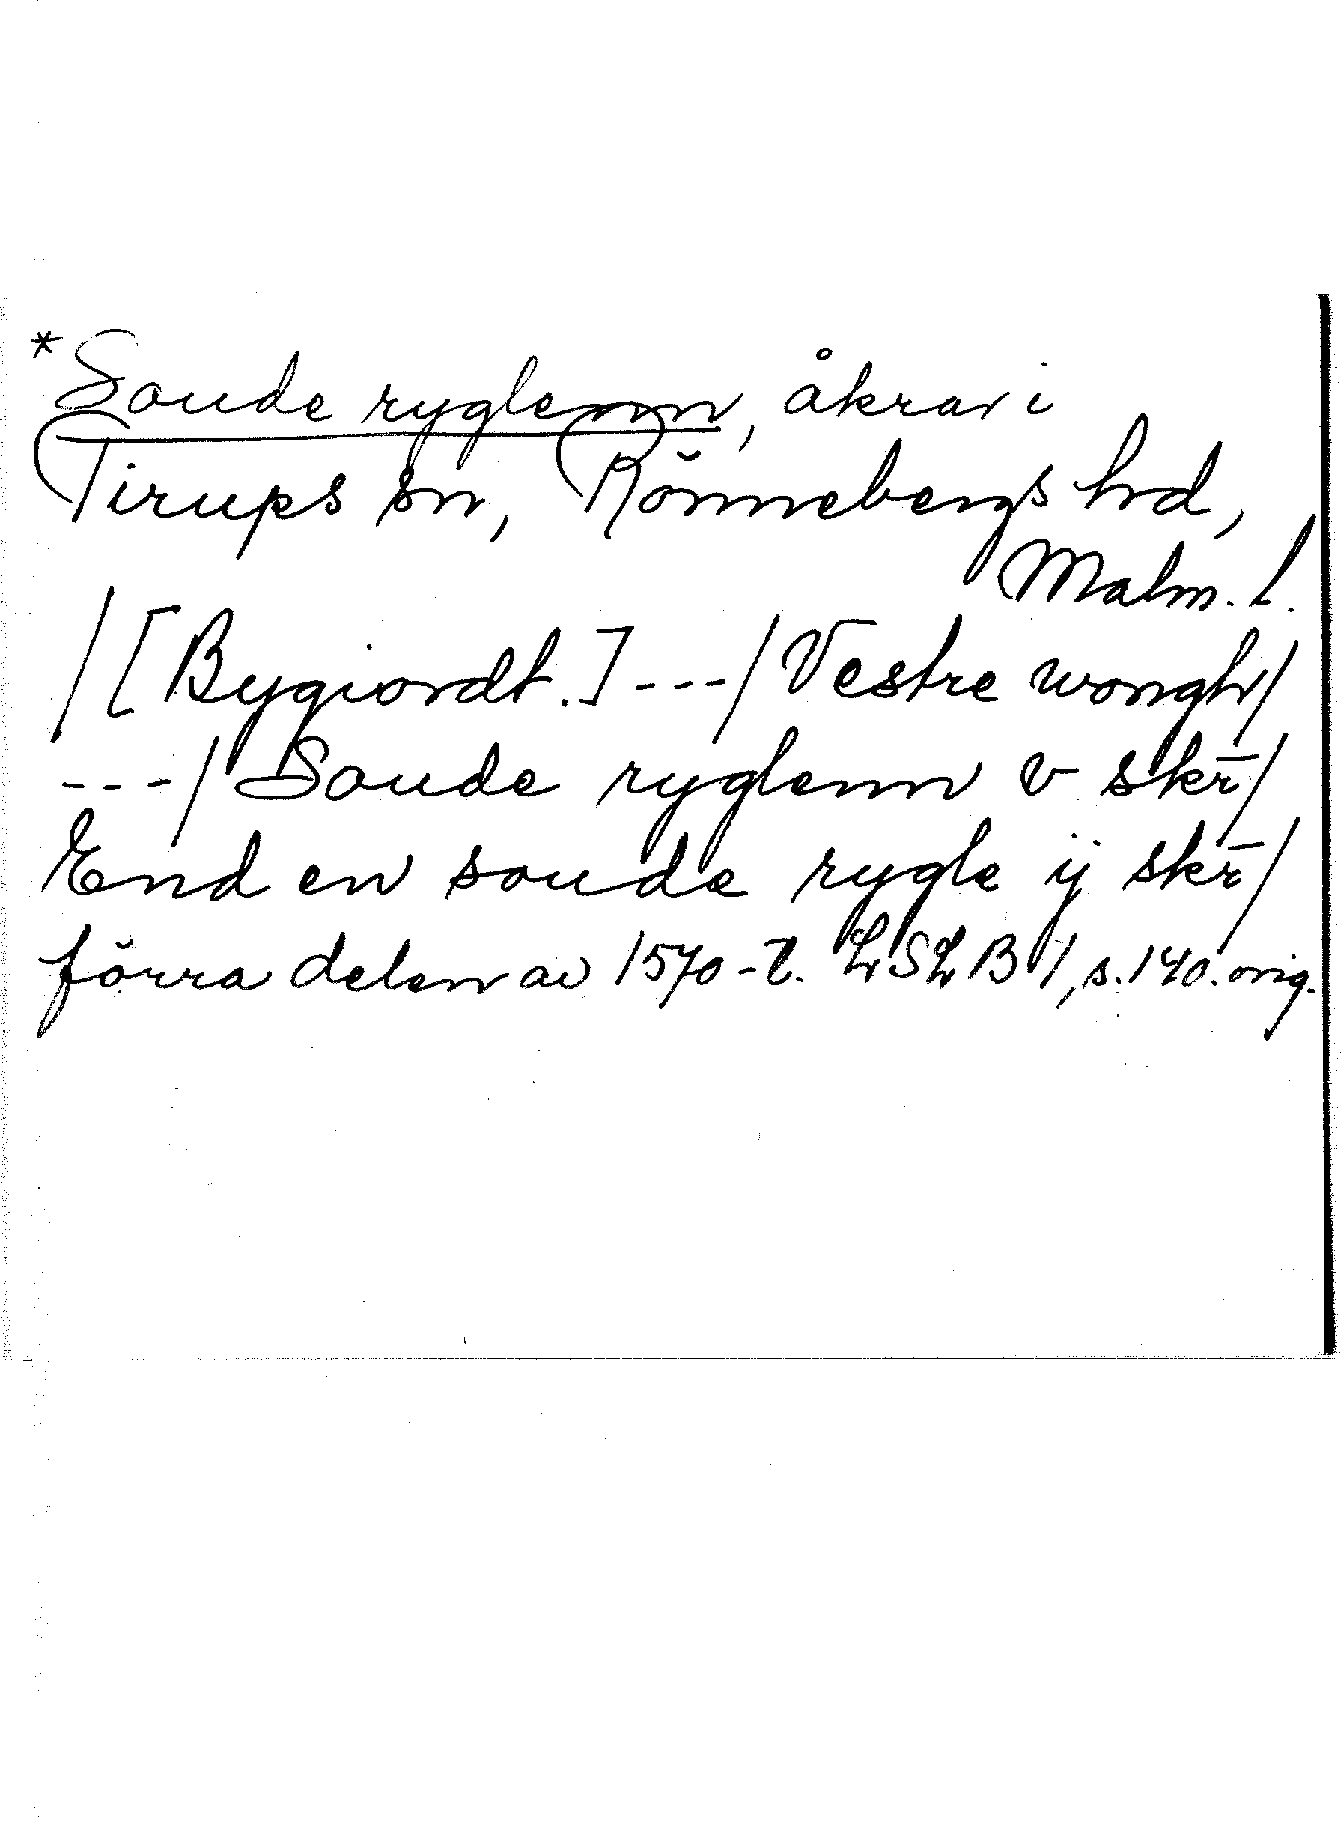 *Soude ryglenn, åkrar i
Tirups sn, Rönnebergs hrd,
Malm. l.
/[Bygiordt.]---/Vestre wongh/
---/Soude ryglenn v skr̄/
End en soude rygle ij skr̄/
förra delen av 1570-t. LSLB 1, s. 140. orig.